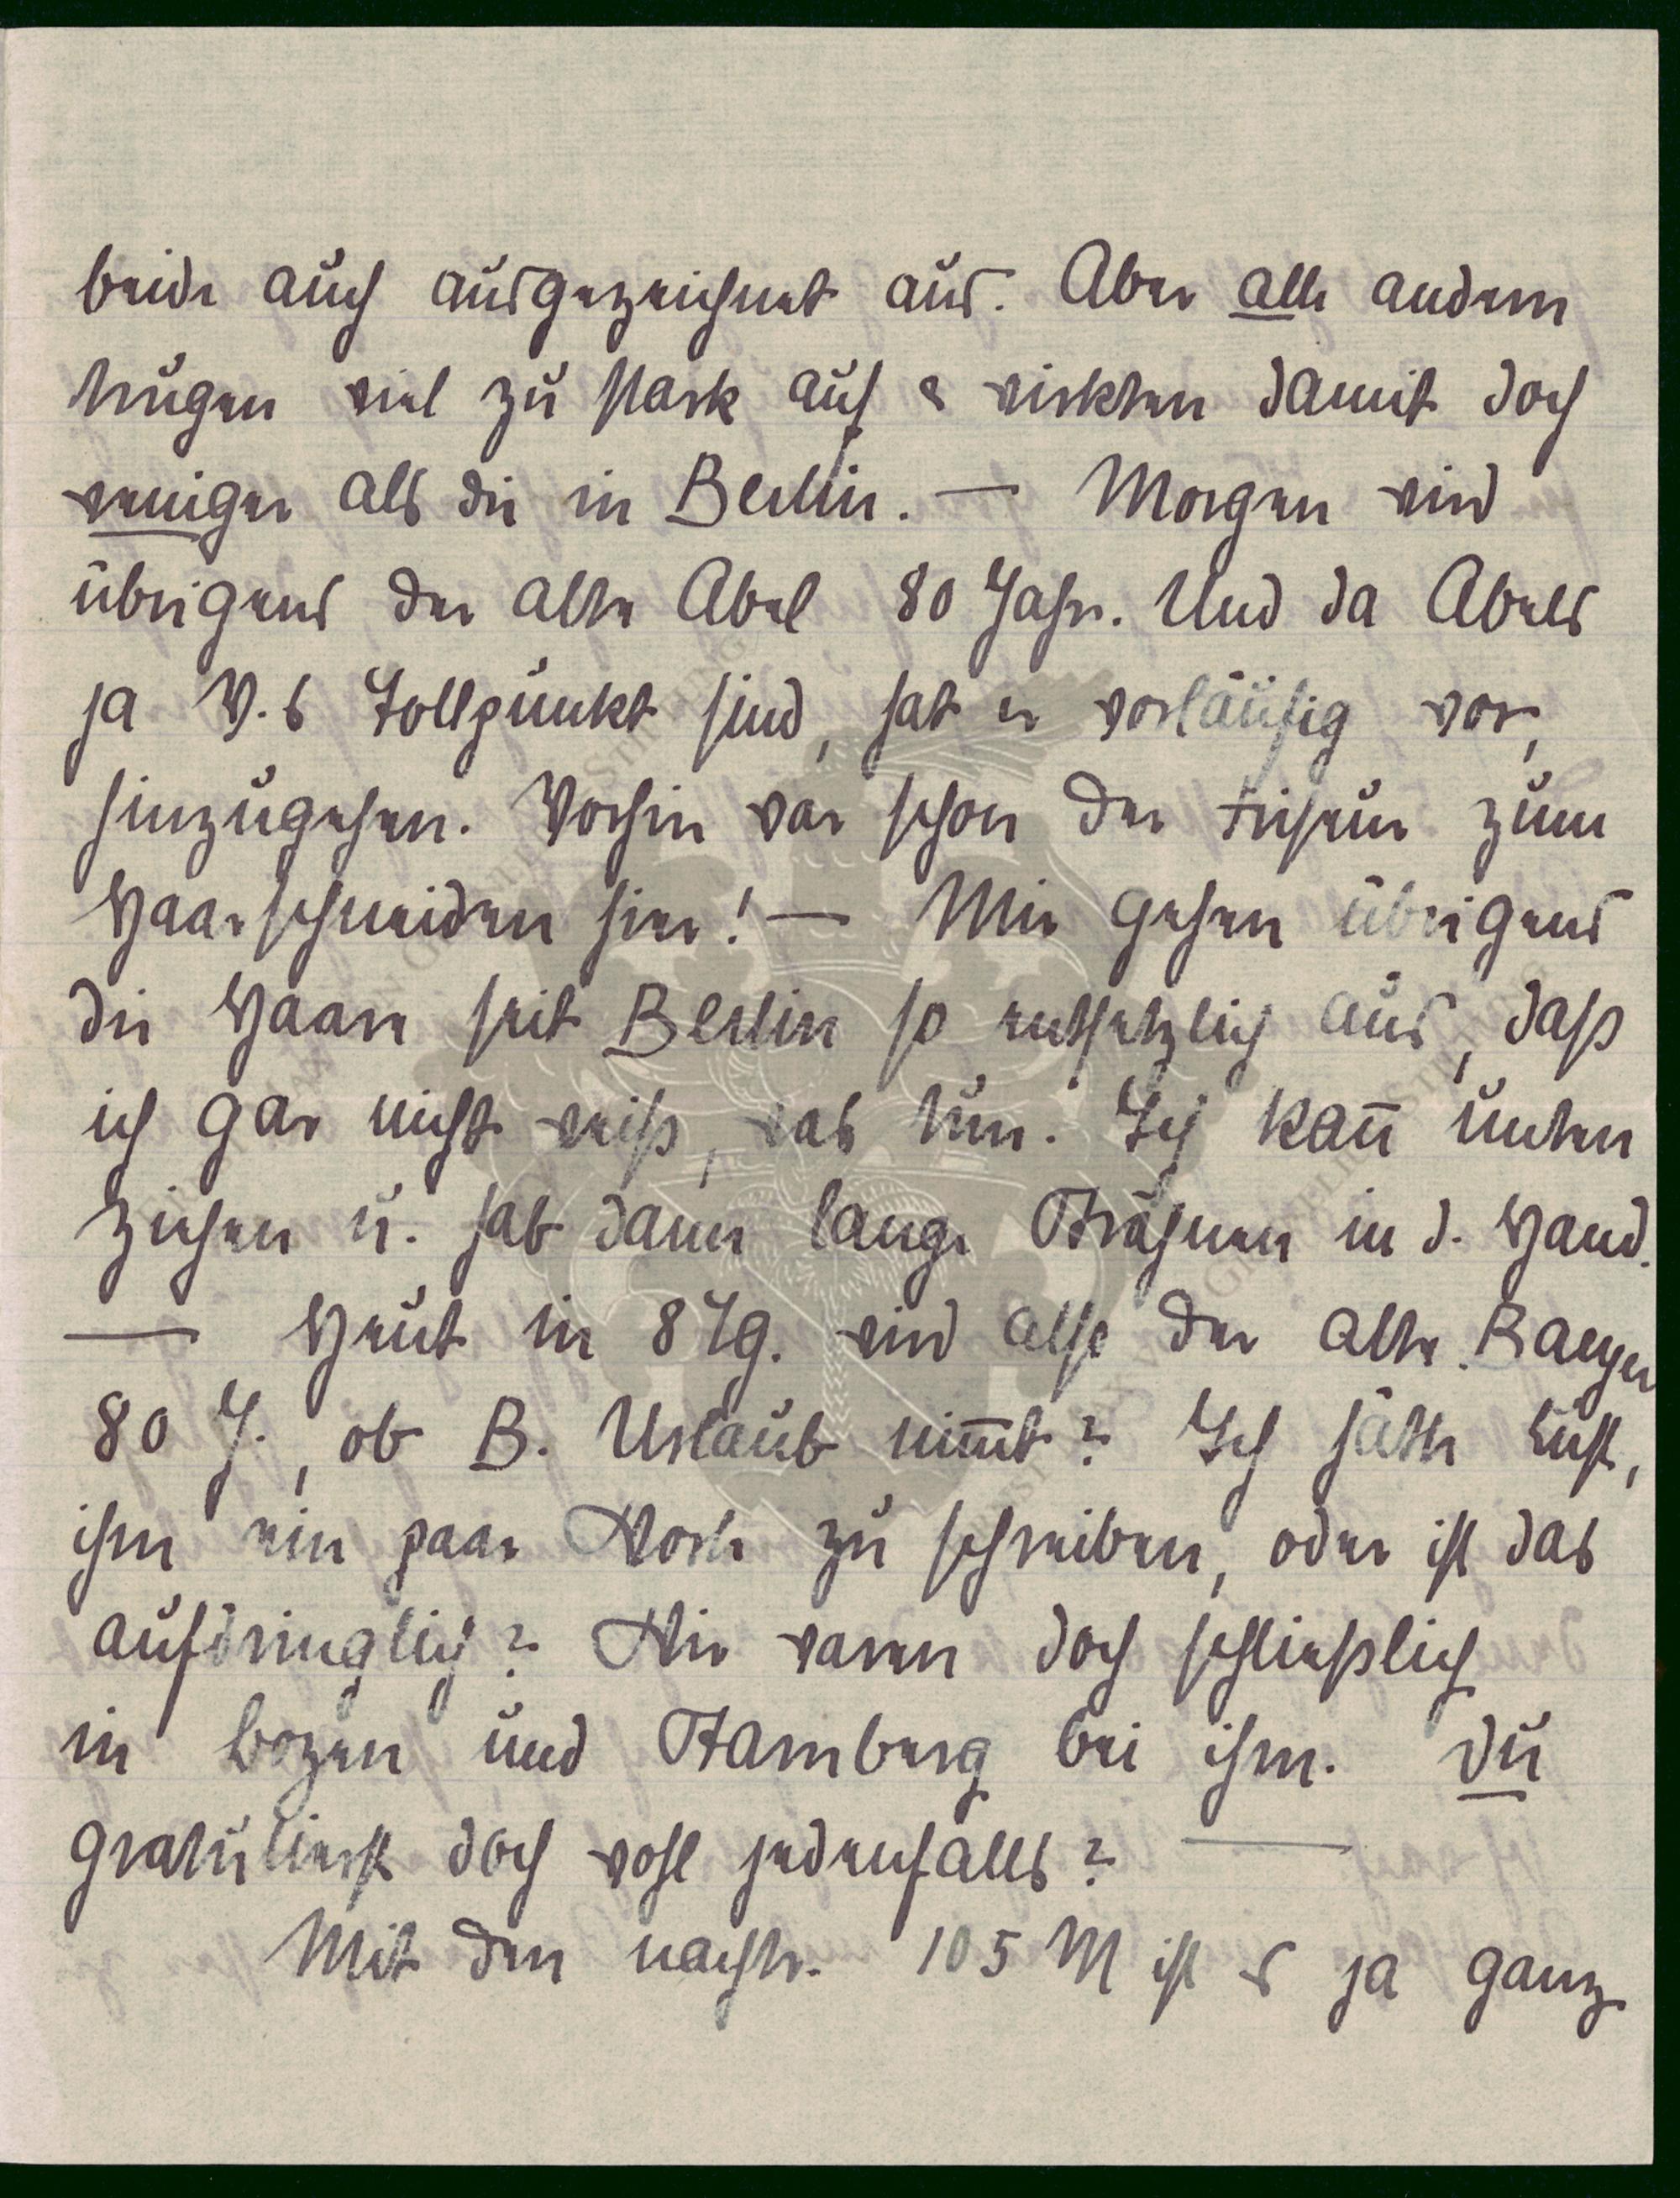 beide auch ausgezeichnet aus. Aber alle andern
trugen viel zu stark auf & wirkten damit doch
weniger als die in Berlin. — Morgen wird
übrigens der alte Abel 80 Jahr. Und da Abels
ja V.s Tollpunkt sind, hat er vorläufig vor,
hinzugehen. Vorhin war schon der Friseur zum
Haarschneiden hier! — Mir gehen übrigens
die Haare seit Berlin so entsetzlich aus, daß
ich gar nicht weiß, was tun. Ich kan̄ unten
ziehen u. hab dann lange Strähnen in d. Hand.
— Heut in 8 Tg. wird also der alte Baeyer
80 J., ob B. Urlaub nim̄t? Ich hätte Lust,
ihm ein paar Worte zu schreiben, oder ist das
aufdringlich? Wir waren doch schließlich
in Bozen und Starnberg bei ihm. Du
gratulierst doch wohl jedenfalls? —
Mit den nachtr. 105 M ist es ja ganz